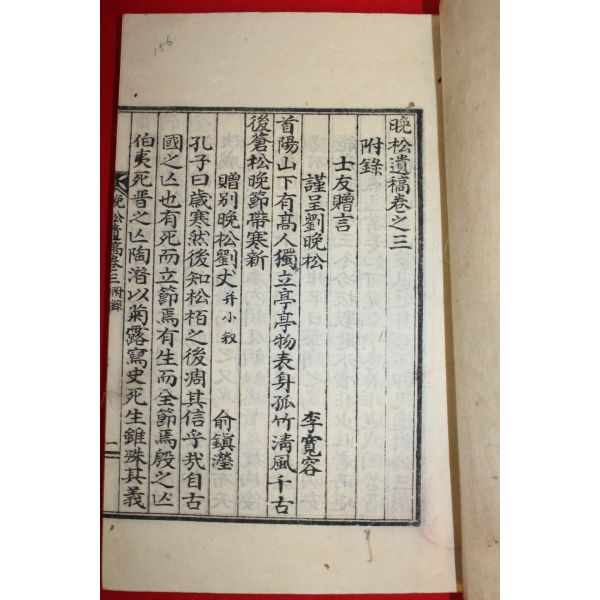 晩松遺稿卷之三
附錄
士友贈言
謹呈劉晩松 李寬容
首陽山下有高人獨立亭亭物表身孤竹淸風千古
後蒼松晩節帶寒新
贈別晩松劉丈 并小敘 俞鎭瀅
孔子曰歲寒然後知松栢之後凋其信乎㢤自古
國之亾也有死而立節焉有生而全節焉殷之亾
伯夷死晋之亾陶潛以菊露寫史死生雖殊其義
晩松遺稿卷三 附錄 一
156